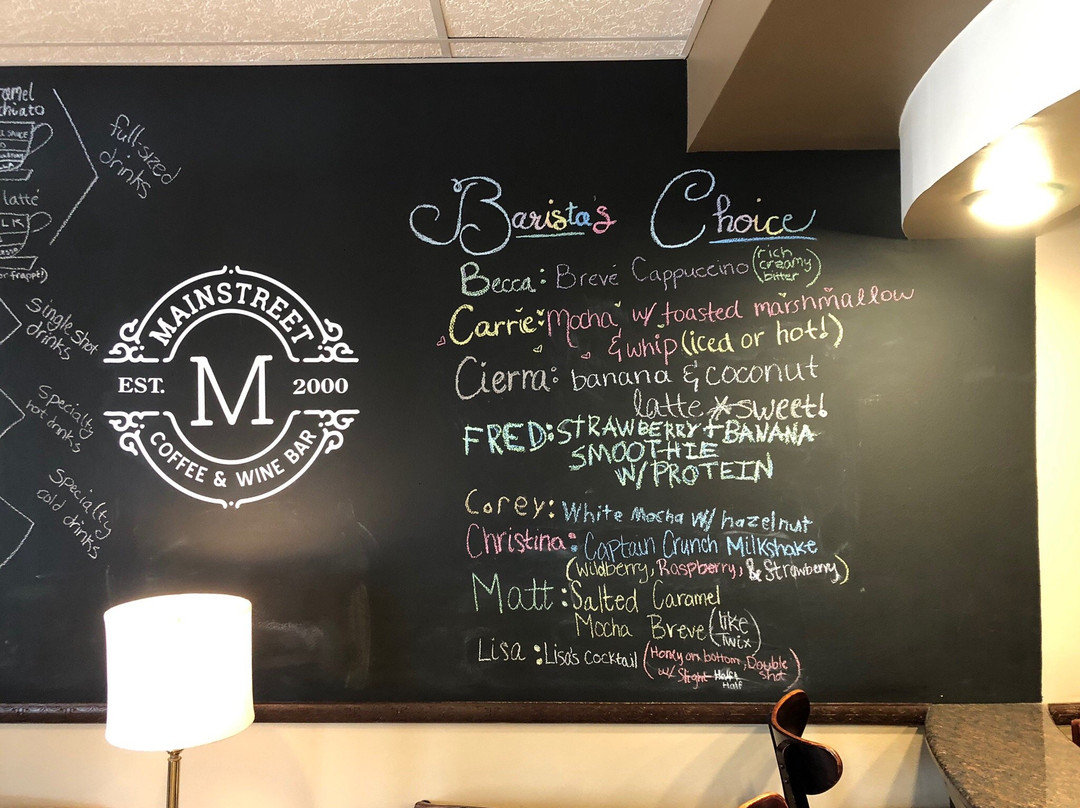 ramel
chiato
latté
LK
or frappé!)
full-sized
drinks
Single shot
drinks
Specialty
hot drinks
Specialty
cold drinks
MAINSTREET
EST. M 2000
COFFEE & WINE BAR
Barista's Choice
Becca: Brevé Cappuccino (rich
creamy
bitter)
Carrie: Mocha w/ toasted marshmallow
& whip (iced or hot!)
Cierra: banana & coconut
latte *sweet!
FRED: STRAWBERRY + BANANA
SMOOTHIE
W/ PROTEIN
Corey: White Mocha W/ hazelnut
Christina: Captain Crunch Milkshake
(Wildberry, Raspberry, & Strawberry)
Matt: Salted Caramel
Mocha Breve (like
Twix)
Lisa: Lisa's Cocktail (Honey on bottom, Double
w/ Slight Half & shot)
Half